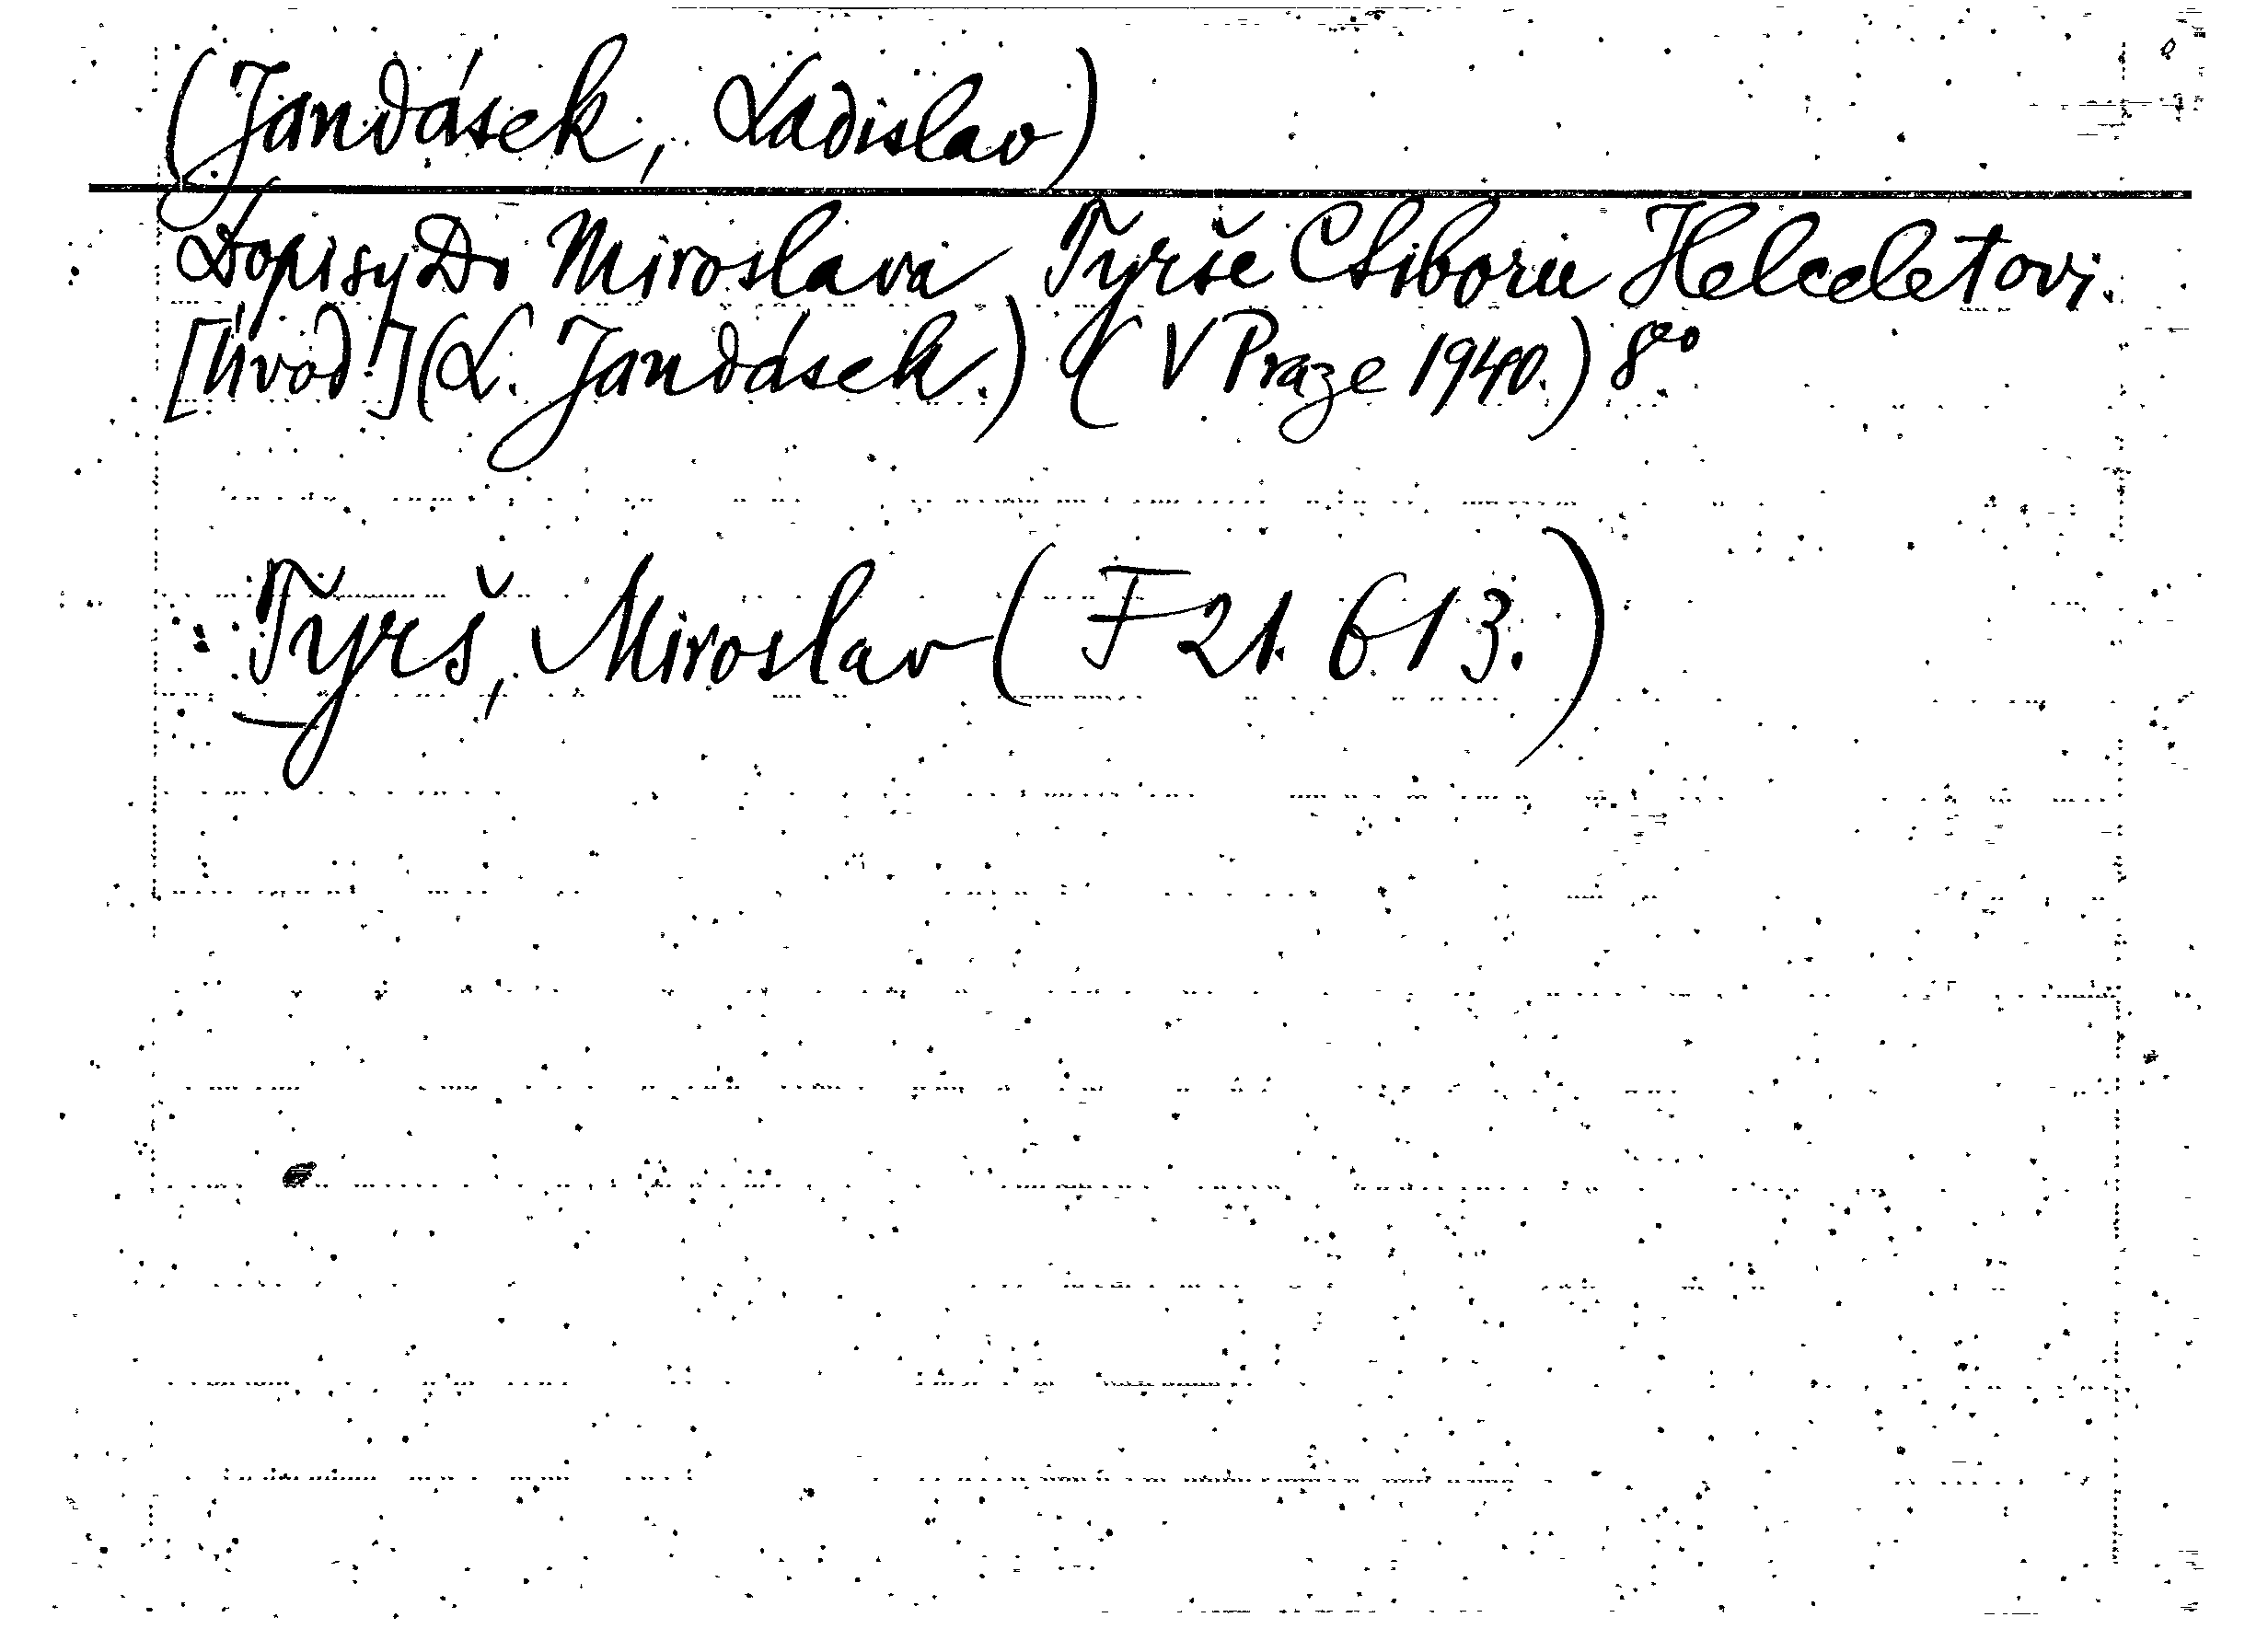 (Jandásek, Ladislav)
Dopisy Dr Miroslava Tyrše Ctiboru Helceletovi.
[Úvod:] (L. Jandásek.) (V Praze 1940.) 8°
Tyrš, Miroslav (F 21.613.)